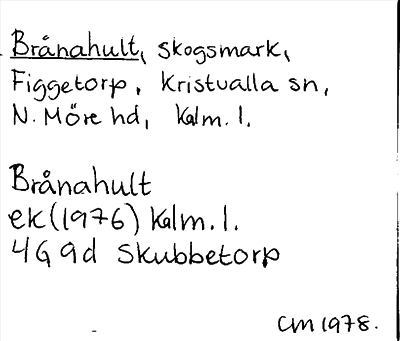 Brånahult, skogsmark,
Figgetorp, Kristvalla sn,
N. Möre hd, Kalm. l.
Brånahult
ek (1976) Kalm. l.
4G 9d Skubbetorp
CM 1978.